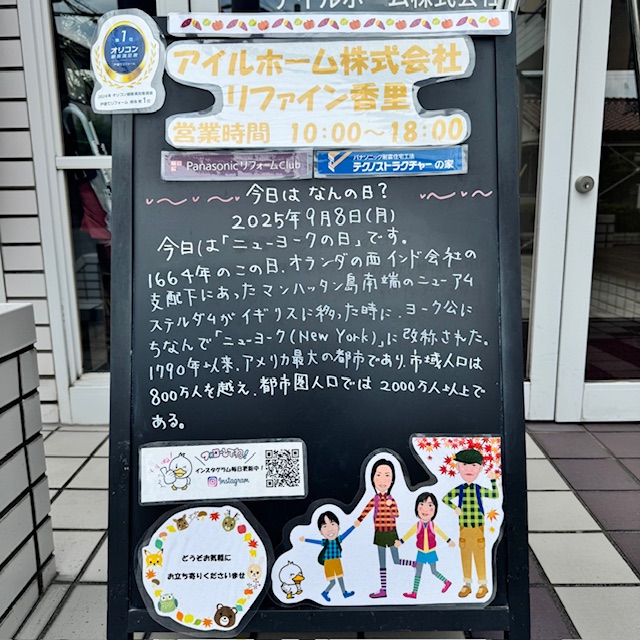 アイルホーム株式会社
第1位
オリコン
顧客満足度
戸建てリフォーム
2024年 オリコン顧客満足度調査
アイルホーム株式会社
リファイン香里
営業時間 10:00〜18:00
Panasonic リフォームClub
パナソニック耐震住宅工法
テクノストラクチャーの家
今日は なんの日?
2025年9月8日(月)
今日は「ニューヨークの日」です。
1664年のこの日、オランダの西インド会社の
支配下にあったマンハッタン島南端のニューアム
ステルダムがイギリスに移った時に、ヨーク公に
ちなんで「ニューヨーク(New York)」に改称された。
1790年以来、アメリカ最大の都市であり、市域人口は
800万人を越え、都市圏人口では2000万人以上で
ある。
フォローしてね!
インスタグラム毎日更新中!
Instagram
どうぞお気軽に
お立ち寄りくださいませ